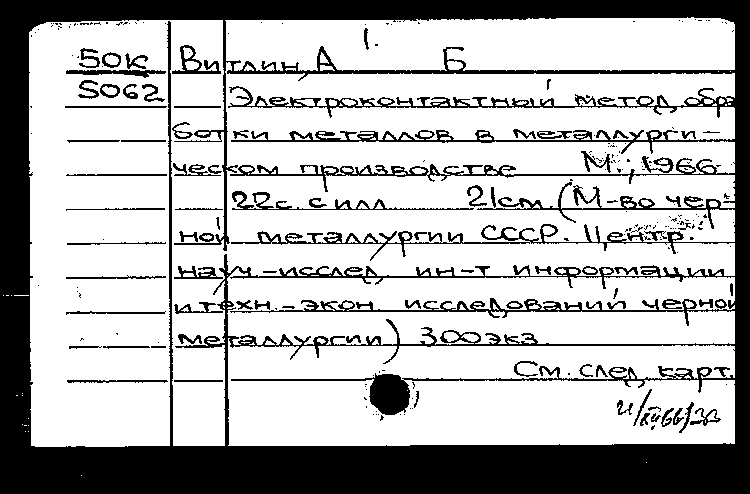 1.
50К Витлин, А Б
5062 Электроконтактный метод обра
ботки металлов в металлурги-
ческом производстве М., 1966
22с. с илл. 21см. (М-во чер-
ной металлургии СССР. Центр.
науч.-исслед. ин-т информации
и техн.-экон. исследований черной
металлургии) 300экз.
См. след. карт.